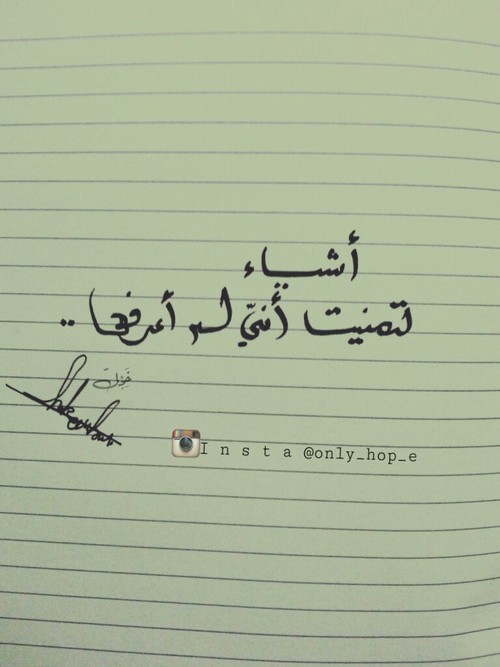 أشياء
تمنيت أنني لم أعرفها ..
I n s t a @only_hop_e